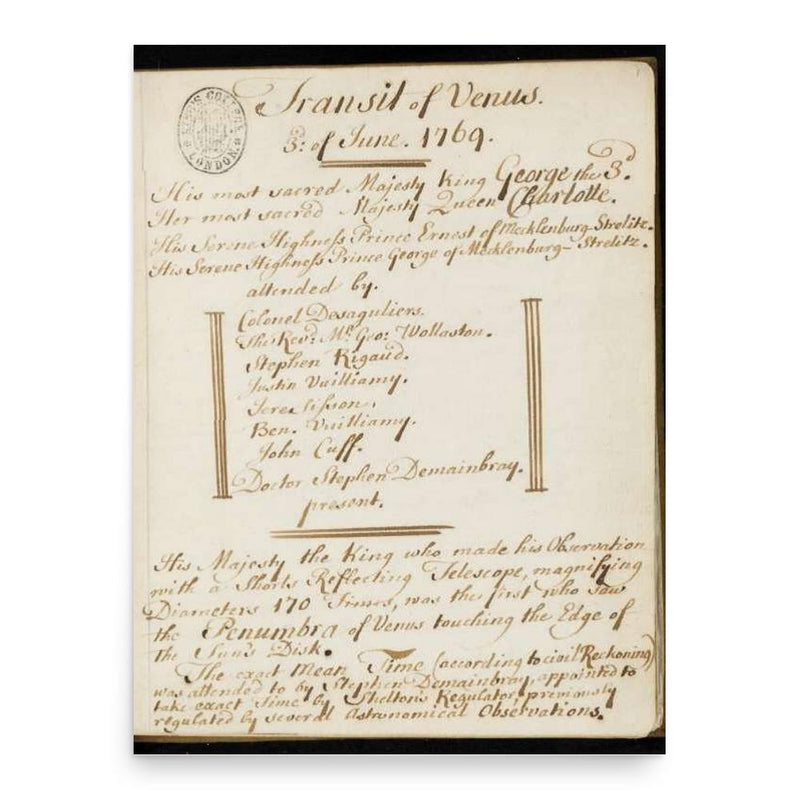 KING'S COLLEGE LONDON
1
Transit of Venus.
3: of June. 1769.
His most sacred Majesty King George the 3d.
Her most sacred Majesty Queen Charlotte.
His Serene Highness Prince Ernest of Mecklenburg-Strelitz.
His Serene Highness Prince George of Mecklenburg-Strelitz.
attended by.
Colonel Desaguliers.
The Revd: Mr. Geo: Wollaston.
Stephen Rigaud.
Justin Vuilliamy.
Jere Sisson.
Ben. Vuilliamy.
John Cuff.
Doctor Stephen Demainbray.
present.
His Majesty the King who made his Observation
with a Shorts Reflecting Telescope, magnifying
Diameters 170 Times, was the first who saw
the Penumbra of Venus touching the Edge of
the Sun's Disk.
The exact Mean Time (according to civil Reckoning)
was attended to by Stephen Demainbray, appointed to
take exact Time by Shelton's Regulator, previously
regulated by several Astronomical Observations.